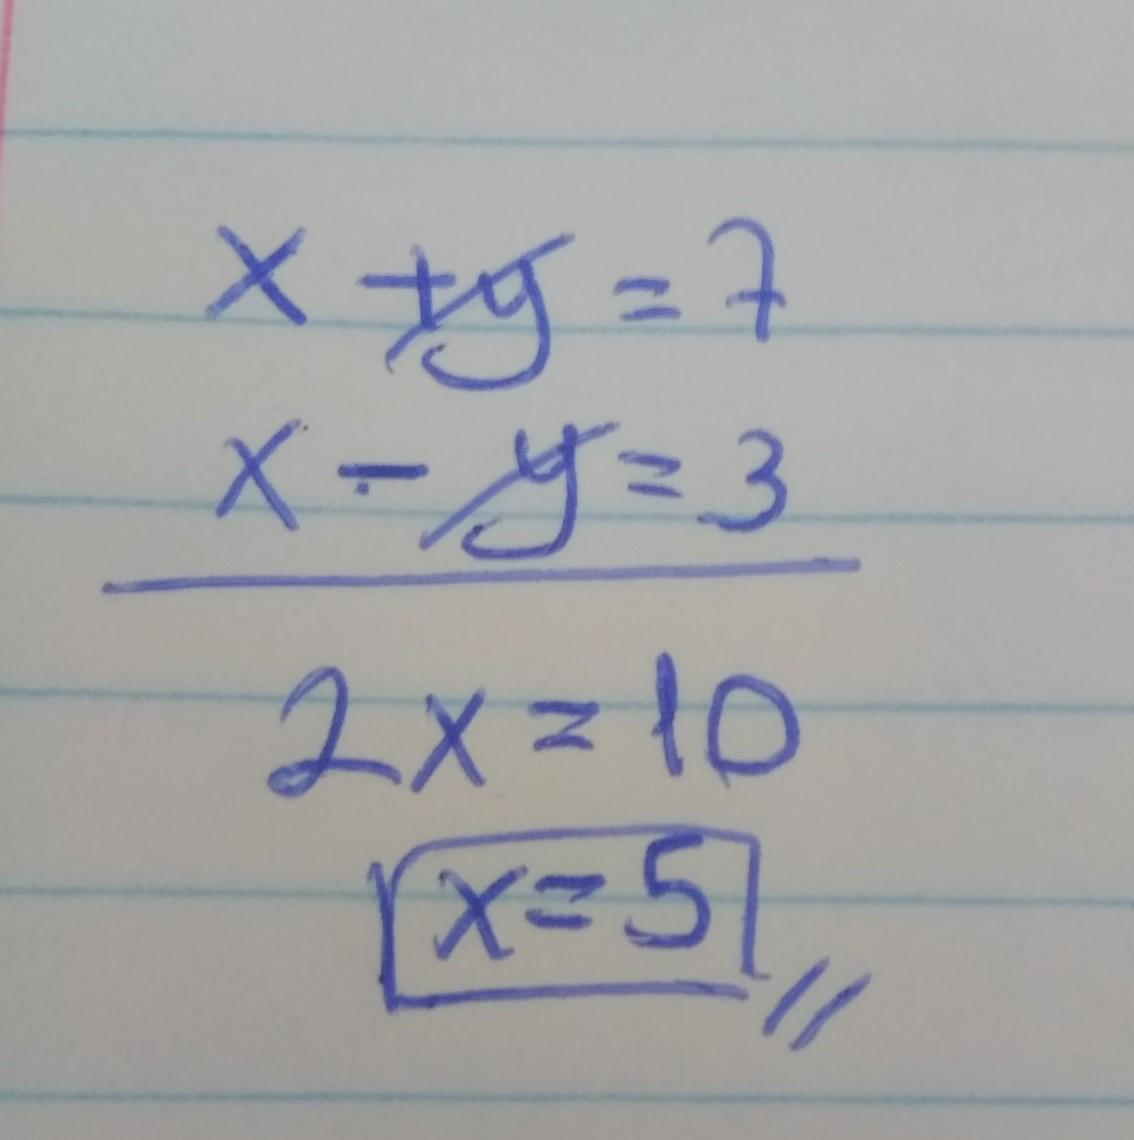 x + y = 7
x - y = 3
2x = 10
x = 5 //